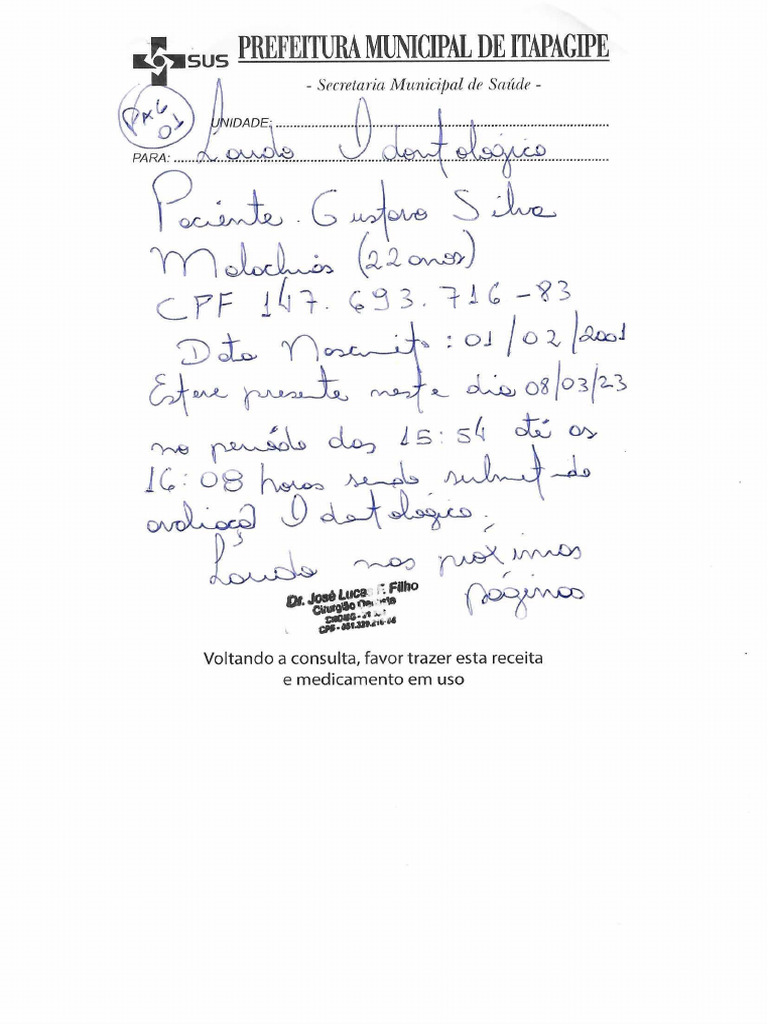 SUS PREFEITURA MUNICIPAL DE ITAPAGIPE
- Secretaria Municipal de Saúde -
PAG 01
UNIDADE:
PARA: Laudo Odontológico
Paciente. Gustavo Silva
(22 anos)
CPF 147.693.716-83
Data Nascimento: 01/02/2001
Esteve presente neste dia 08/03/23
no período das 15:54 até as
16:08 horas sendo submetido
avaliação Odontológica.
Laudo nas próximas
páginas
Dr. José Lucas F. Filho
Cirurgião Dentista
Voltando a consulta, favor trazer esta receita
e medicamento em uso